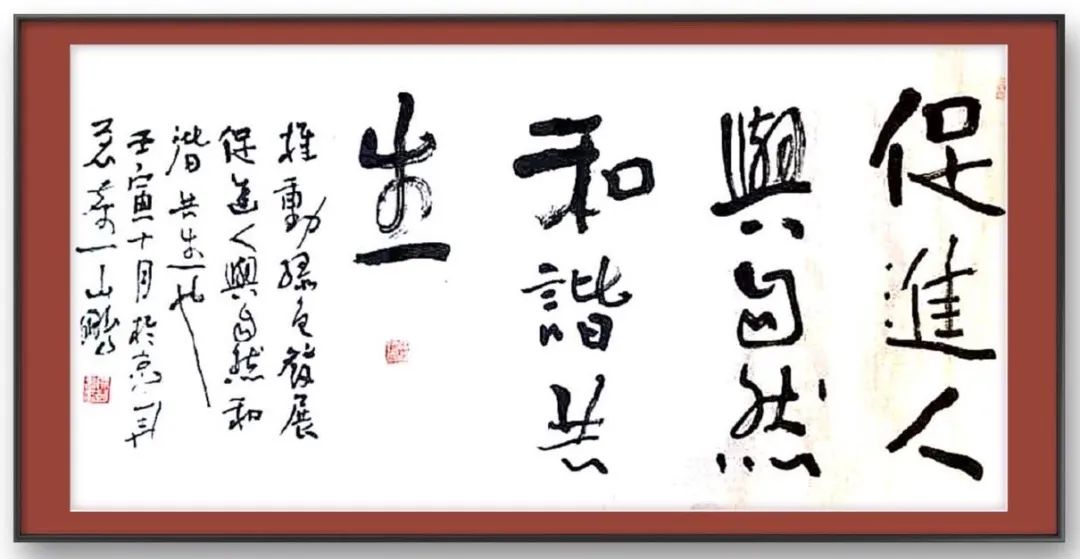 促進人
與自然
和諧共
生
推動綠色發展
促進人與自然和
諧共生也
壬寅十月於京
一山